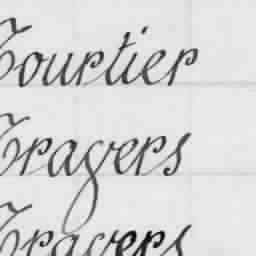 Tourtier
Tragers
Tragers